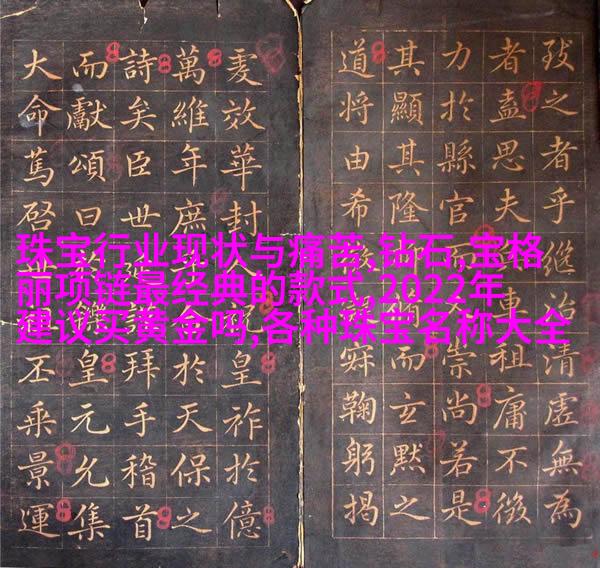 珠宝行业现状与痛苦,钻石,宝格
丽项链最经典的款式,2022年
建议买黄金吗,各种珠宝名称大全
致之者乎继治清虛無為
者盍思夫祖庸不微
力於縣官而崇尚若是
其顯其隆而玄默之
道將由希鞠躬揭
效華封人祝皇祚於億
萬維年庶於天保之
詩矣臣世拜手稽首
而獻頌曰皇元允集
大命篤啓世丕乘景運